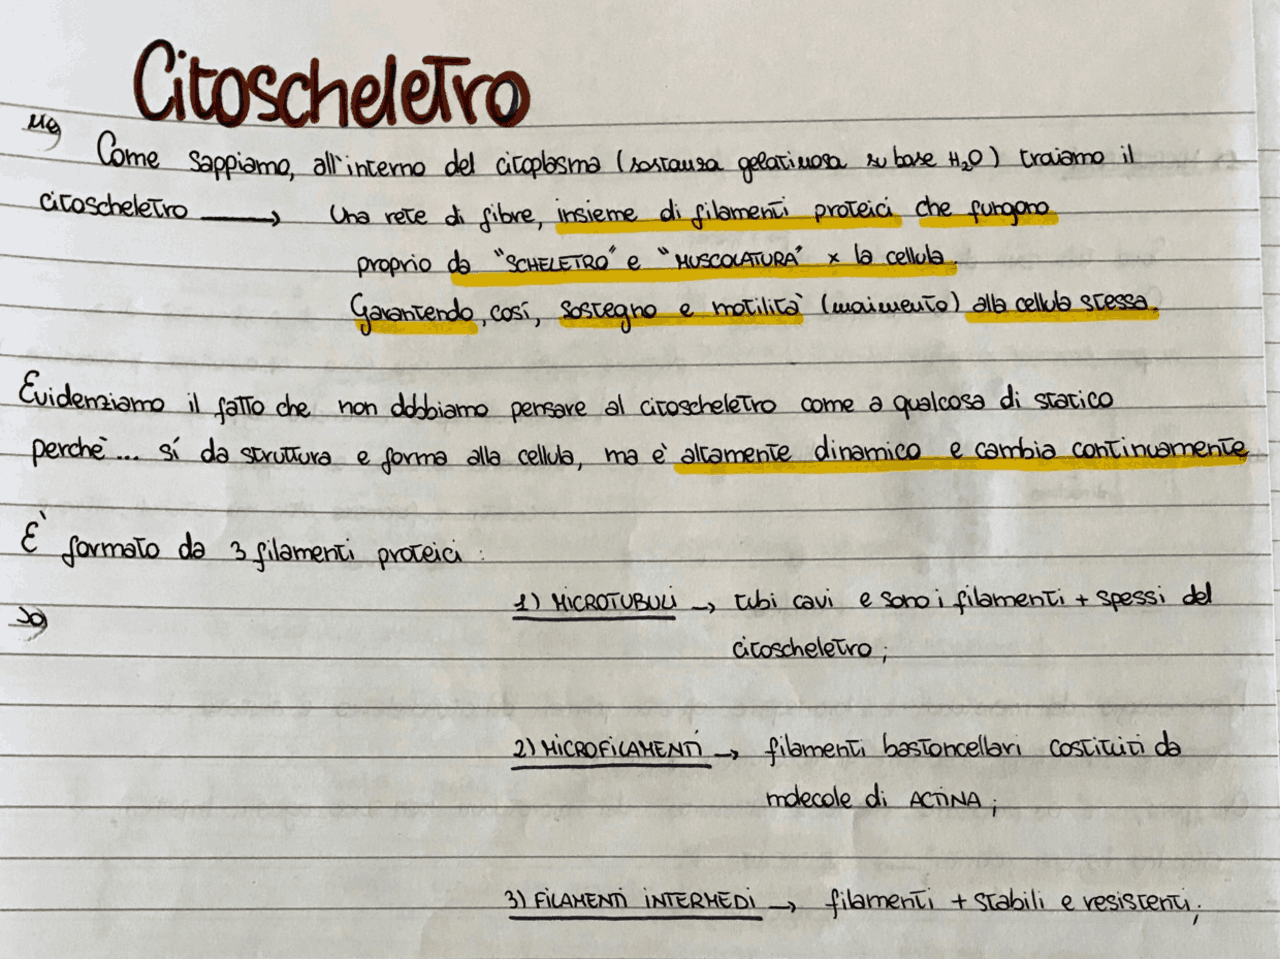 Citoscheletro
Come sappiamo, all'interno del citoplasma (sostanza gelatinosa su base H₂O) troviamo il
citoscheletro → Una rete di fibre, insieme di filamenti proteici che fungono
proprio da "SCHELETRO" e "MUSCOLATURA" x la cellula.
Garantendo, così, sostegno e motilità (movimento) alla cellula stessa.
Evidenziamo il fatto che non dobbiamo pensare al citoscheletro come a qualcosa di statico
perchè... sí da struttura e forma alla cellula, ma è altamente dinamico e cambia continuamente
È formato da 3 filamenti proteici:
1) MICROTUBULI → tubi cavi e sono i filamenti + spessi del
citoscheletro;
2) MICROFILAMENTI → filamenti bastoncellari costituiti da
molecole di ACTINA;
3) FILAMENTI INTERMEDI → filamenti + stabili e resistenti;